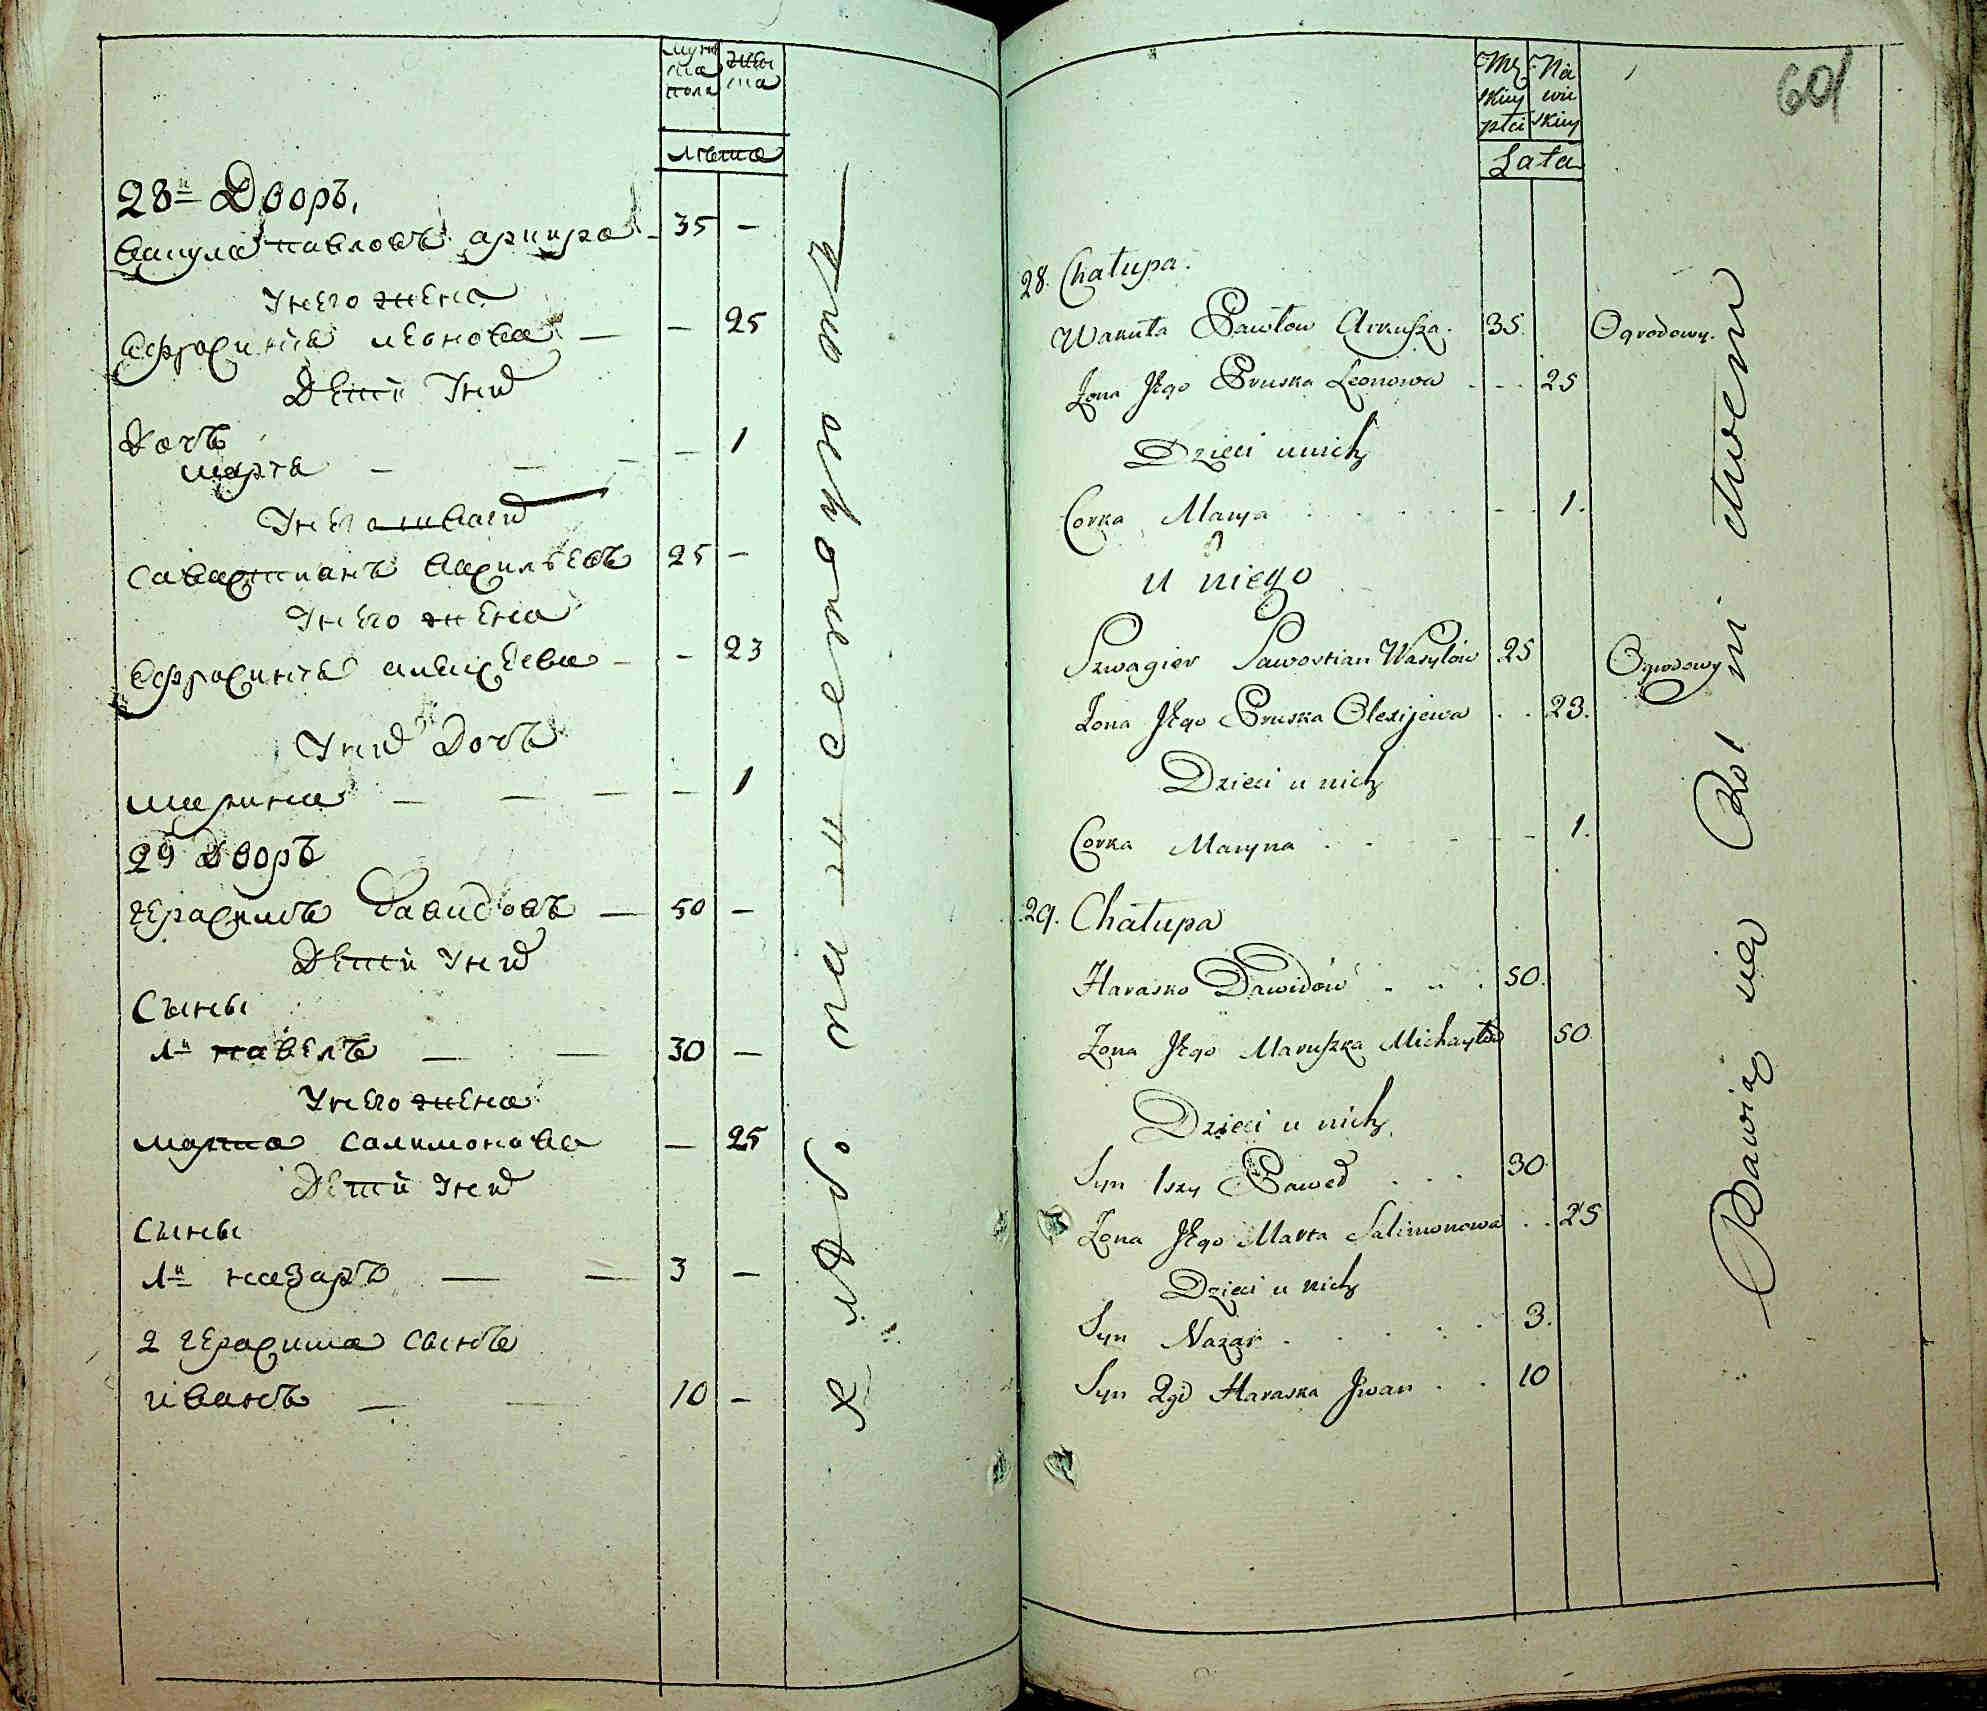 муж
ска
пола
жен
ска
лѣта
28й Дворъ,
Вакула павловъ 35 —
Унего жена
Ефросинья леонова — — 25
Дети Ухъ
Дочъ
марья — — — — 1
Унего
Савастианъ Василъевъ 25 —
Унего жена
Ефросинья алексеева — — 23
Унихъ Дочъ
марина — — — — 1
29 Дворъ
герасимъ Давидовъ — 50 —
Дети Унихъ
Сыны
1й павелъ — — 30 —
Унего жена
марта салимонова — 25
Дети Унихъ
сыны
1й назаръ — — 3 —
2 герасима сынъ
иванъ — — 10 —
хлебо
601
Mę
skiey
płci
Nie
wie
skiey
Lata
28. Chałupa.
Wakuła Pawłow Arkusza. 35. Ogrodowy.
Żona Jego Pruska Leonowa . . . 25
Dzieci u nich
Corka Marya . . . . . 1.
u niego
Szwagier Sawostian Wasylów 25 Ogrodowy
Żona Jego Pruska Olexijewa . . 23.
Dzieci u nich
Corka Maryna . . . . . 1.
29. Chałupa
Harasko Dawidów . . . 50.
Żona Jego Maruszka Michayłow 50
Dzieci u nich
Syn 1szy Paweł . . . 30
Żona Jego Marta Salimonowa . . 25
Dzieci u nich
Syn Nazar . . . . . 3.
Syn 2gi Haraska Jwan . . 10
Bawią się Rolnictwem